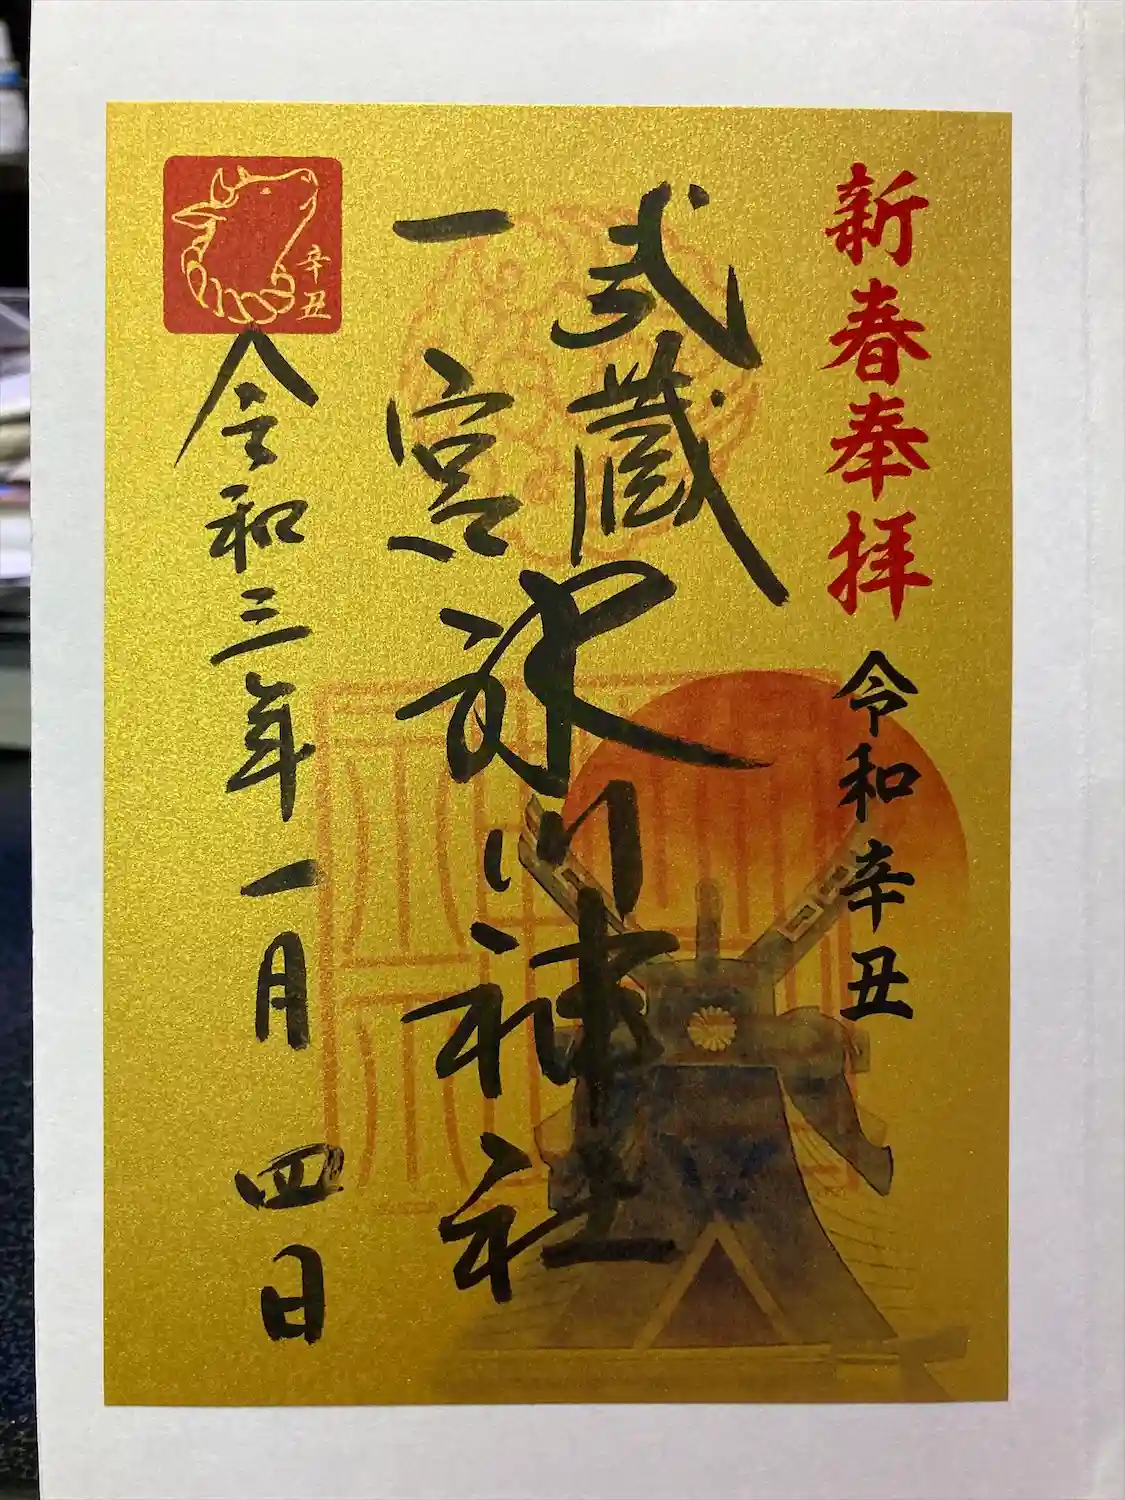 新春奉拝 令和辛丑
武蔵
一宮
氷川神社
令和三年一月四日
辛丑